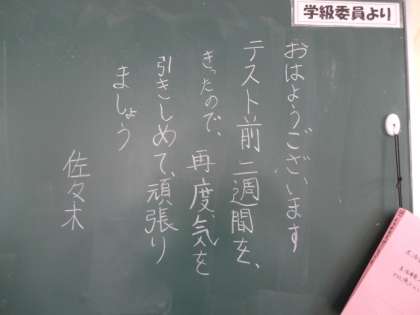 学級委員より
おはようございます
テスト前二週間を、
きったので、再度気を
引きしめて、頑張り
ましょう
佐々木